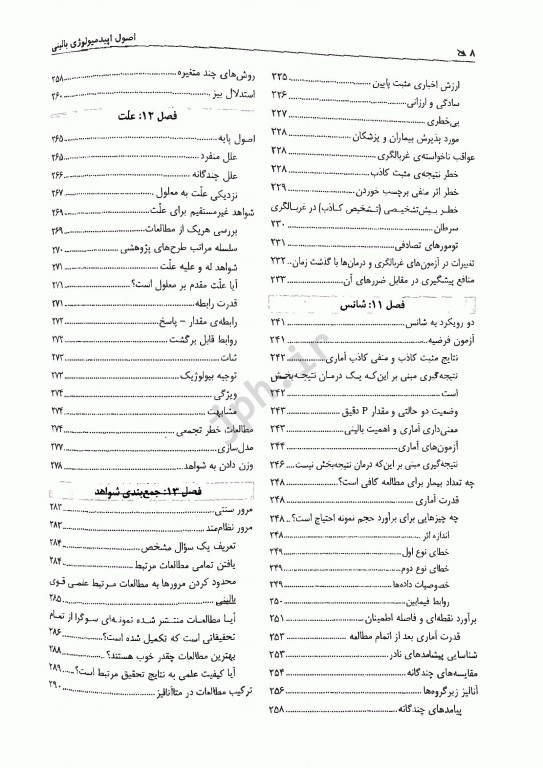 ۸
اصول اپیدمیولوژی بالینی
ارزش اخباری مثبت پایین ۲۲۵
سادگی و ارزانی ۲۲۶
بی‌خطری ۲۲۷
مورد پذیرش بیماران و پزشکان ۲۲۸
عواقب ناخواسته‌ی غربالگری ۲۲۸
خطر نتیجه‌ی مثبت کاذب ۲۲۸
خطر اثر منفی برچسب خوردن ۲۲۹
خطر بیش‌تشخیصی (تشخیص کاذب) در غربالگری
سرطان ۲۳۰
تومورهای تصادفی ۲۳۱
تغییرات در آزمون‌های غربالگری و درمان‌ها با گذشت زمان ۲۳۲
منافع پیشگیری در مقابل ضررهای آن ۲۳۳
فصل ۱۱: شانس
دو رویکرد به شانس ۲۴۱
آزمون فرضیه ۲۴۱
نتایج مثبت کاذب و منفی کاذب آماری ۲۴۲
نتیجه‌گیری مبنی بر این‌که یک درمان نتیجه‌بخش
است ۲۴۲
وضعیت دو حالتی و مقدار P دقیق ۲۴۳
معنی‌داری آماری و اهمیت بالینی ۲۴۳
آزمون‌های آماری ۲۴۴
نتیجه‌گیری مبنی بر این‌که درمان نتیجه‌بخش نیست ۲۴۶
چه تعداد بیمار برای مطالعه کافی است؟ ۲۴۸
قدرت آماری ۲۴۸
چه چیزهایی برای برآورد حجم نمونه احتیاج است؟ ۲۴۸
اندازه اثر ۲۴۸
خطای نوع اول ۲۴۹
خطای نوع دوم ۲۴۹
خصوصیات داده‌ها ۲۴۹
روابط فیمابین ۲۵۰
برآورد نقطه‌ای و فاصله اطمینان ۲۵۱
قدرت آماری بعد از اتمام مطالعه ۲۵۳
شناسایی پیشامدهای نادر ۲۵۳
مقایسه‌های چندگانه ۲۵۴
آنالیز زیرگروه‌ها ۲۵۶
پیامدهای چندگانه ۲۵۸
روش‌های چند متغیره ۲۵۸
استدلال بیز ۲۶۰
فصل ۱۲: علت
اصول پایه ۲۶۵
علل منفرد ۲۶۵
علل چندگانه ۲۶۶
نزدیکی علّت به معلول ۲۶۷
شواهد غیرمستقیم برای علّت ۲۶۹
بررسی هریک از مطالعات ۲۶۹
سلسله مراتب طرح‌های پژوهشی ۲۷۰
شواهد له و علیه علّت ۲۷۱
آیا علّت مقدم بر معلول است؟ ۲۷۱
قدرت رابطه ۲۷۱
رابطه‌ی مقدار – پاسخ ۲۷۲
روابط قابل برگشت ۲۷۲
ثبات ۲۷۳
توجیه بیولوژیک ۲۷۳
ویژگی ۲۷۴
مشابهت ۲۷۴
مطالعات خطر تجمعی ۲۷۴
مدل‌سازی ۲۷۷
وزن دادن به شواهد ۲۷۸
فصل ۱۳: جمع‌بندی شواهد
مرور سنتی ۲۸۳
مرور نظام‌مند ۲۸۳
تعریف یک سؤال مشخص ۲۸۴
یافتن تمامی مطالعات مرتبط ۲۸۴
محدود کردن مرورها به مطالعات مرتبط علمی قوی
بالینی ۲۸۵
آیا مطالعات منتشر شده نمونه‌ای سوگرا از تمام
تحقیقاتی است که تکمیل شده است؟ ۲۸۶
بهترین مطالعات چقدر خوب هستند؟ ۲۸۸
آیا کیفیت علمی به نتایج تحقیق مرتبط است؟ ۲۸۹
ترکیب مطالعات در متاآنالیز ۲۹۰
jph.ir